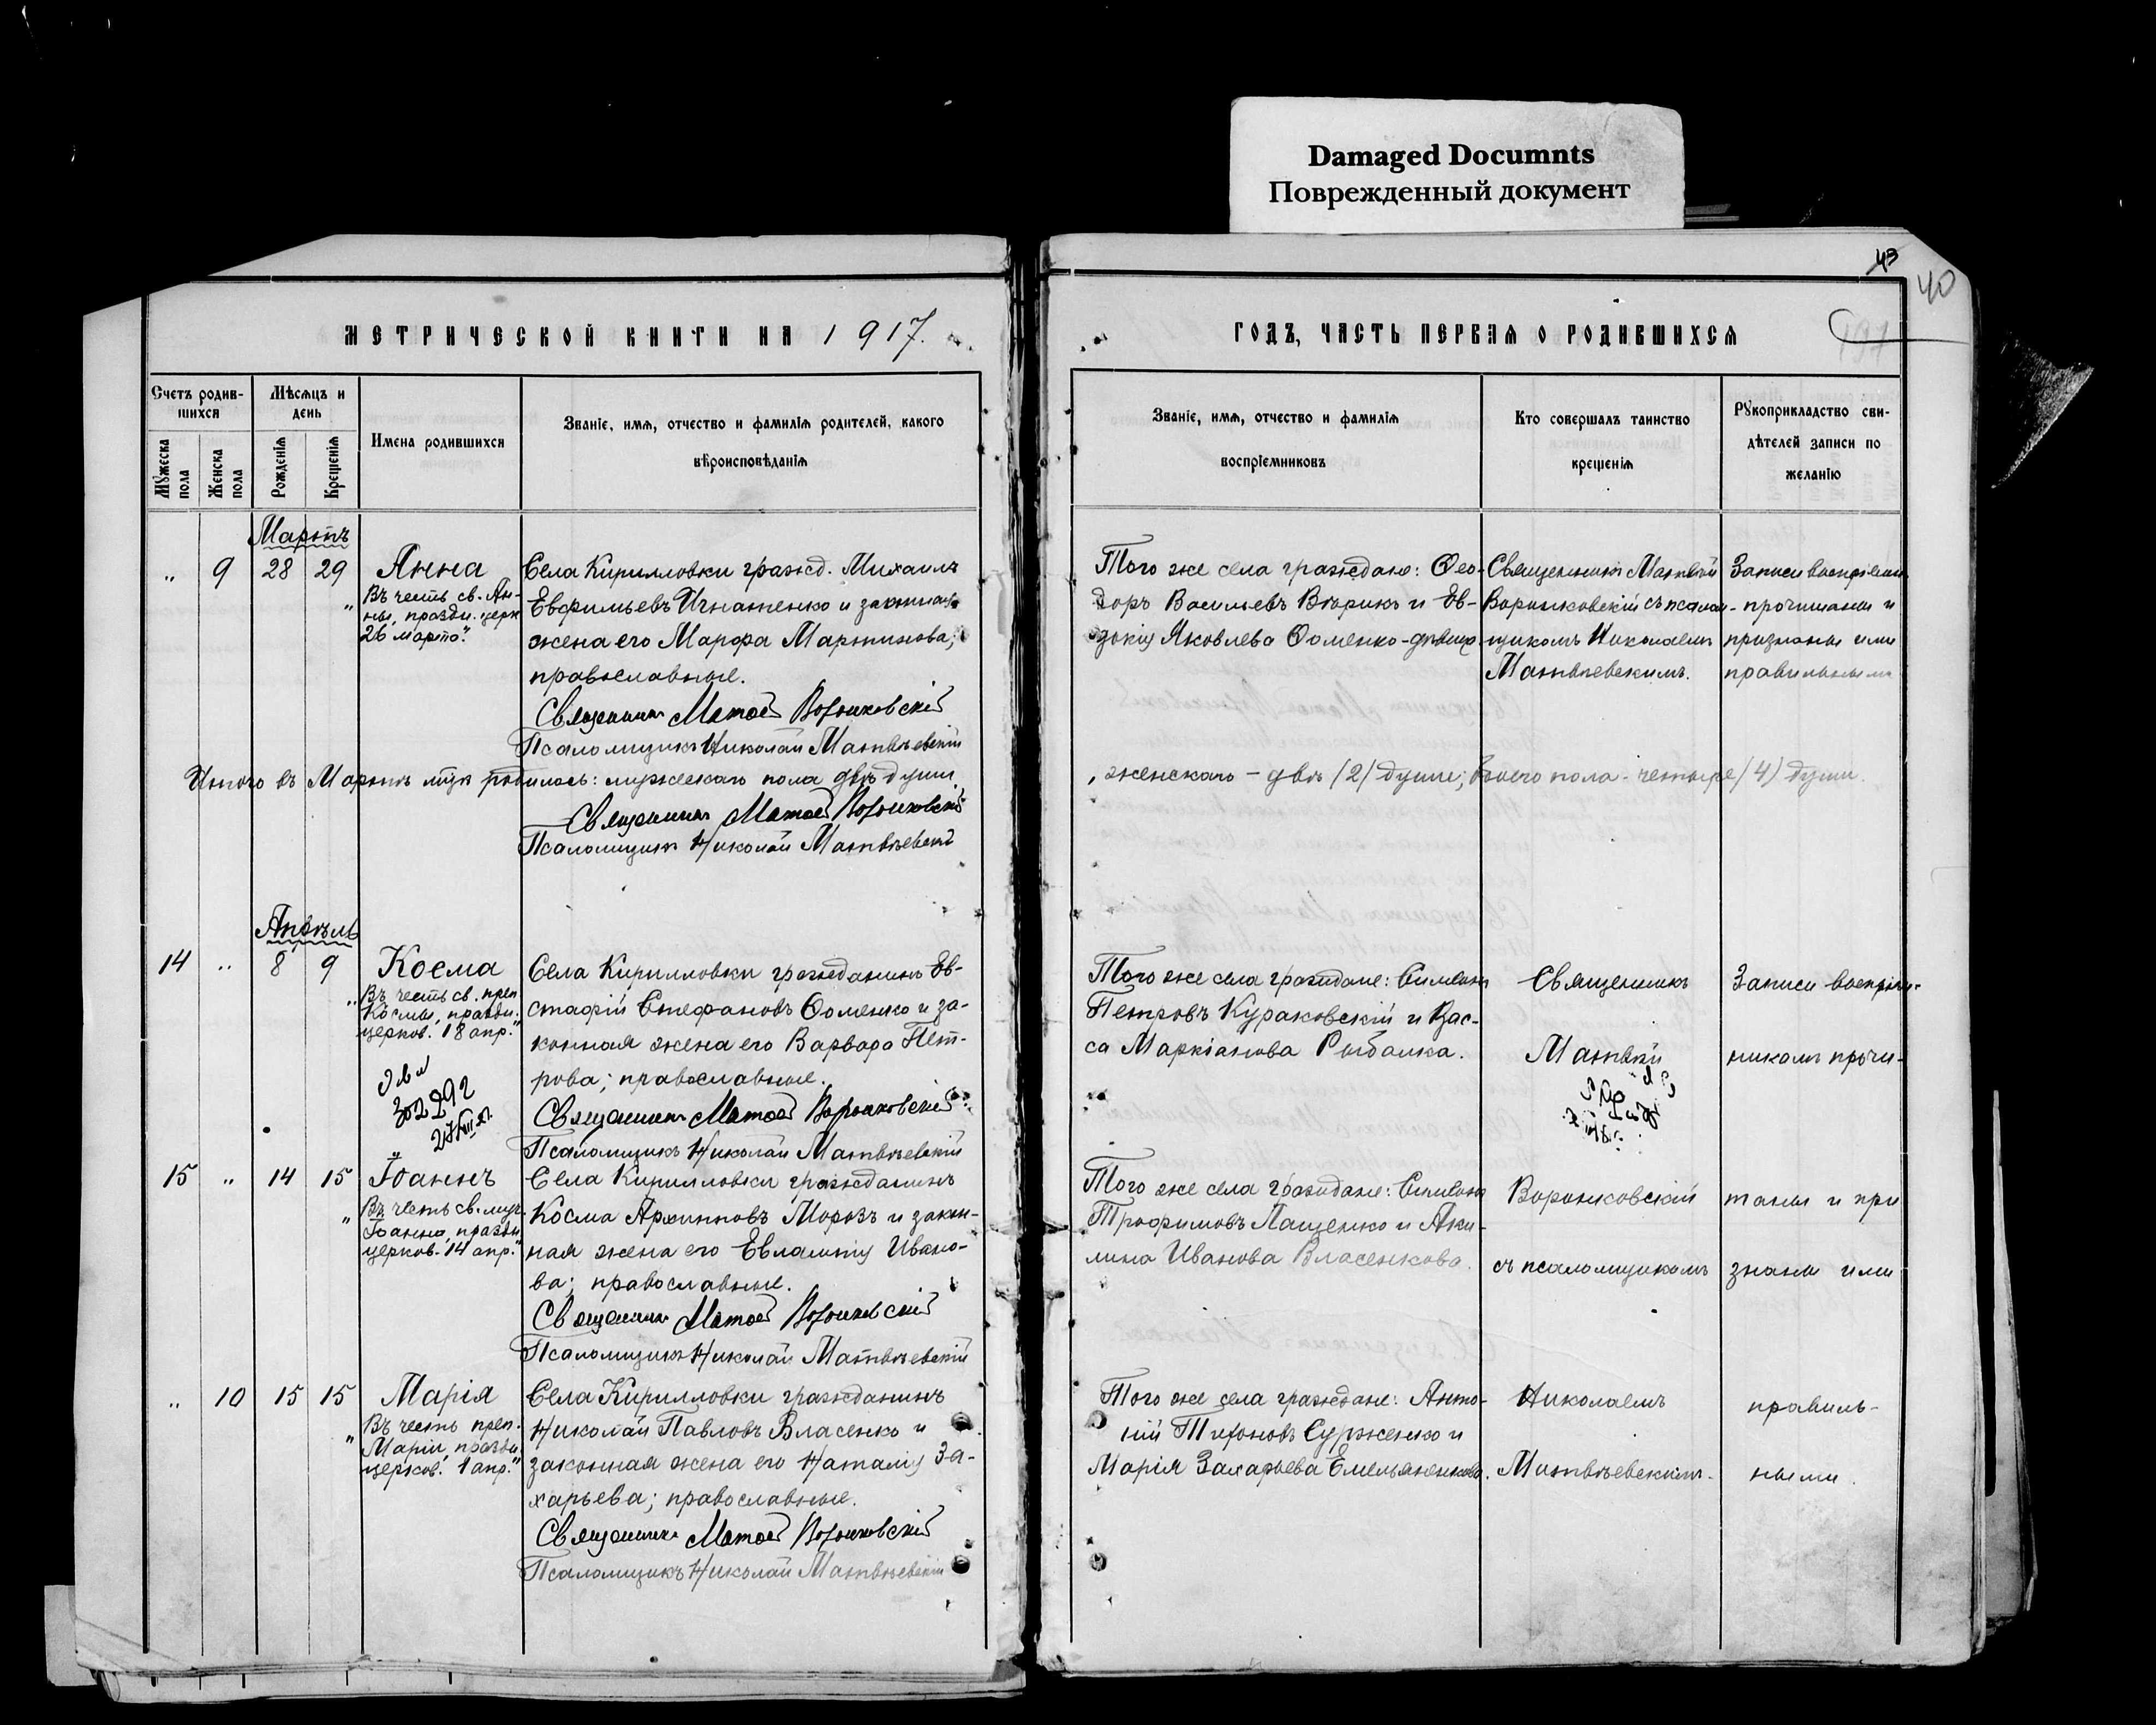 Damaged Documnts
Поврежденный документ
43
40
МЕТРИЧЕСКОЙ КНИГИ НА 1917.
ГОДЪ, ЧАСТЬ ПЕРВАЯ О РОДИВШИХСЯ
Счетъ родив-
шихся
Мѣсяцъ и
день
Имена родившихся
Званіе, имя, отчество и фамилія родителей, какого
вѣроисповѣданія
Мужеска
пола
Женска
пола
Рожденія
Крещенія
Званіе, имя, отчество и фамилія
воспріемниковъ
Кто совершалъ таинство
крещенія
Рукоприкладство сви-
дѣтелей записи по
желанію
Мартъ
" 9 28 29 Анна
"Въ честь св. Ан-
ны, праздн. церк
26 марта."
Села Кирилловки гражд. Михаилъ
Евфимьевъ Игнатенко и законная
жена его Марфа Мартинова;
православные.
Священникъ Матѳей Воронковскій
Псаломщикъ Николай Матвѣевскій
Того же села граждане: Ѳео-
доръ Васильевъ Вѣрикъ и Ев-
докія Яковлева Ѳоменко-дѣвица
Священникъ Матвѣй
Воронковскій съ псалом-
щикомъ Николаемъ
Матвѣевскимъ.
Записи воспріемн.
прочитаны и
признаны ими
правильными
Итого въ Мартѣ мцѣ родилось: мужскаго пола двѣ души
, женскаго - двѣ /2/ души; обоего пола - четыре /4/ души.
Священникъ Матѳей Воронковскій
Псаломщикъ Николай Матвѣевскій
Апрѣль
14 " 8 9 Косма
"Въ честь св. преп
Космы, праздн.
церков. 18 апр."
Села Кирилловки гражданинъ Ев-
стафій Стефановъ Ѳоменко и за-
конная жена его Варвара Пет-
рова; православные.
Священникъ Матѳей Воронковскій
Псаломщикъ Николай Матвѣевскій
Того же села граждане: Симеонъ
Петровъ Кураковскій и Вас-
са Маркіанова Рыбалка.
Священникъ
Матвѣй
Записи воспріем-
никамъ прочи-
15 " 14 15 Іоаннъ
"Въ честь св. муч.
Іоанна, праздн
церков. 14 апр."
Села Кирилловки гражданинъ
Косма Архипповъ Морозъ и закон-
ная жена его Евлампія Ивано-
ва; православные.
Священникъ Матѳей Воронковскій
Псаломщикъ Николай Матвѣевскій
Того же села граждане: Симеонъ
Трофимовъ Пащенко и Аки-
лина Иванова Власенкова.
Воронковскій
съ псаломщикомъ
таны и при
знаны ими
" 10 15 15 Марія
"Въ честь преп.
Маріи, праздн.
церков. 1 апр."
Села Кирилловки гражданинъ
Николай Павловъ Власенко и
законная жена его Наталія За-
харьева; православные.
Священникъ Матѳей Воронковскій
Псаломщикъ Николай Матвѣевскій
Того же села граждане: Анто-
ній Тихоновъ Сурженко и
Марія Захарьева Емельяненкова.
Николаемъ
Матвѣевскимъ.
правиль-
ными.